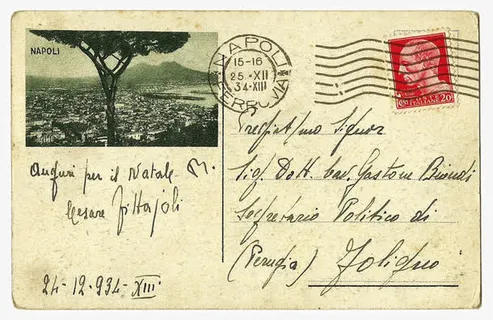 NAPOLI
NAPOLI
15-16
25·XII
34·XIII
FERROVIA
POSTE ITALIANE 20
Auguri per il Natale
Cesare
24-12-934-XIII
Signor
Sig. Dott. Cav. Gastone Biondi
Segretario Politico di
(Perugia) Foligno